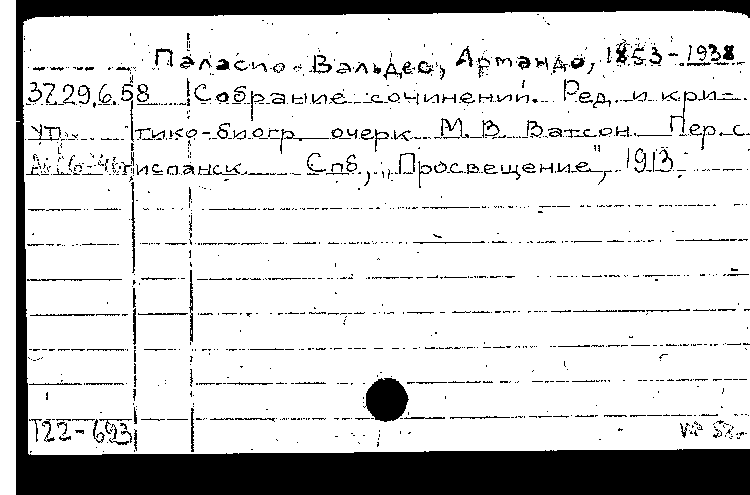 Паласио-Вальдес, Армандо, 1853-1938
37.29.6.58 Собрание сочинений. Ред. и кри-
тико-биогр. очерк М. В. Ватсон. Пер. с
испанск. Спб, „Просвещение", 1913.
122-693